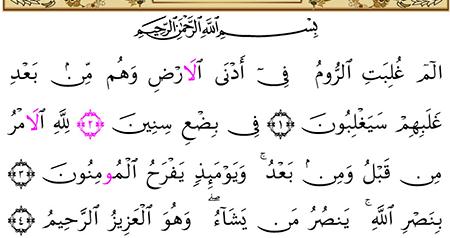 بِسْمِ اللَّهِ الرَّحْمَٰنِ الرَّحِيمِ
الٓمٓ غُلِبَتِ الرُّومُ فِىٓ أَدْنَى الَارْضِ وَهُم مِّنۢ بَعْدِ
غَلَبِهِمْ سَيَغْلِبُونَ ﴿١﴾ فِى بِضْعِ سِنِينَ ﴿٢﴾ لِلَّهِ الَامْرُ
مِن قَبْلُ وَمِنۢ بَعْدُ ۚ وَيَوْمَئِذٍ يَفْرَحُ الْمُومِنُونَ ﴿٣﴾
بِنَصْرِ اللَّهِ ۚ يَنصُرُ مَن يَشَآءُ ۖ وَهُوَ الْعَزِيزُ الرَّحِيمُ ﴿٤﴾